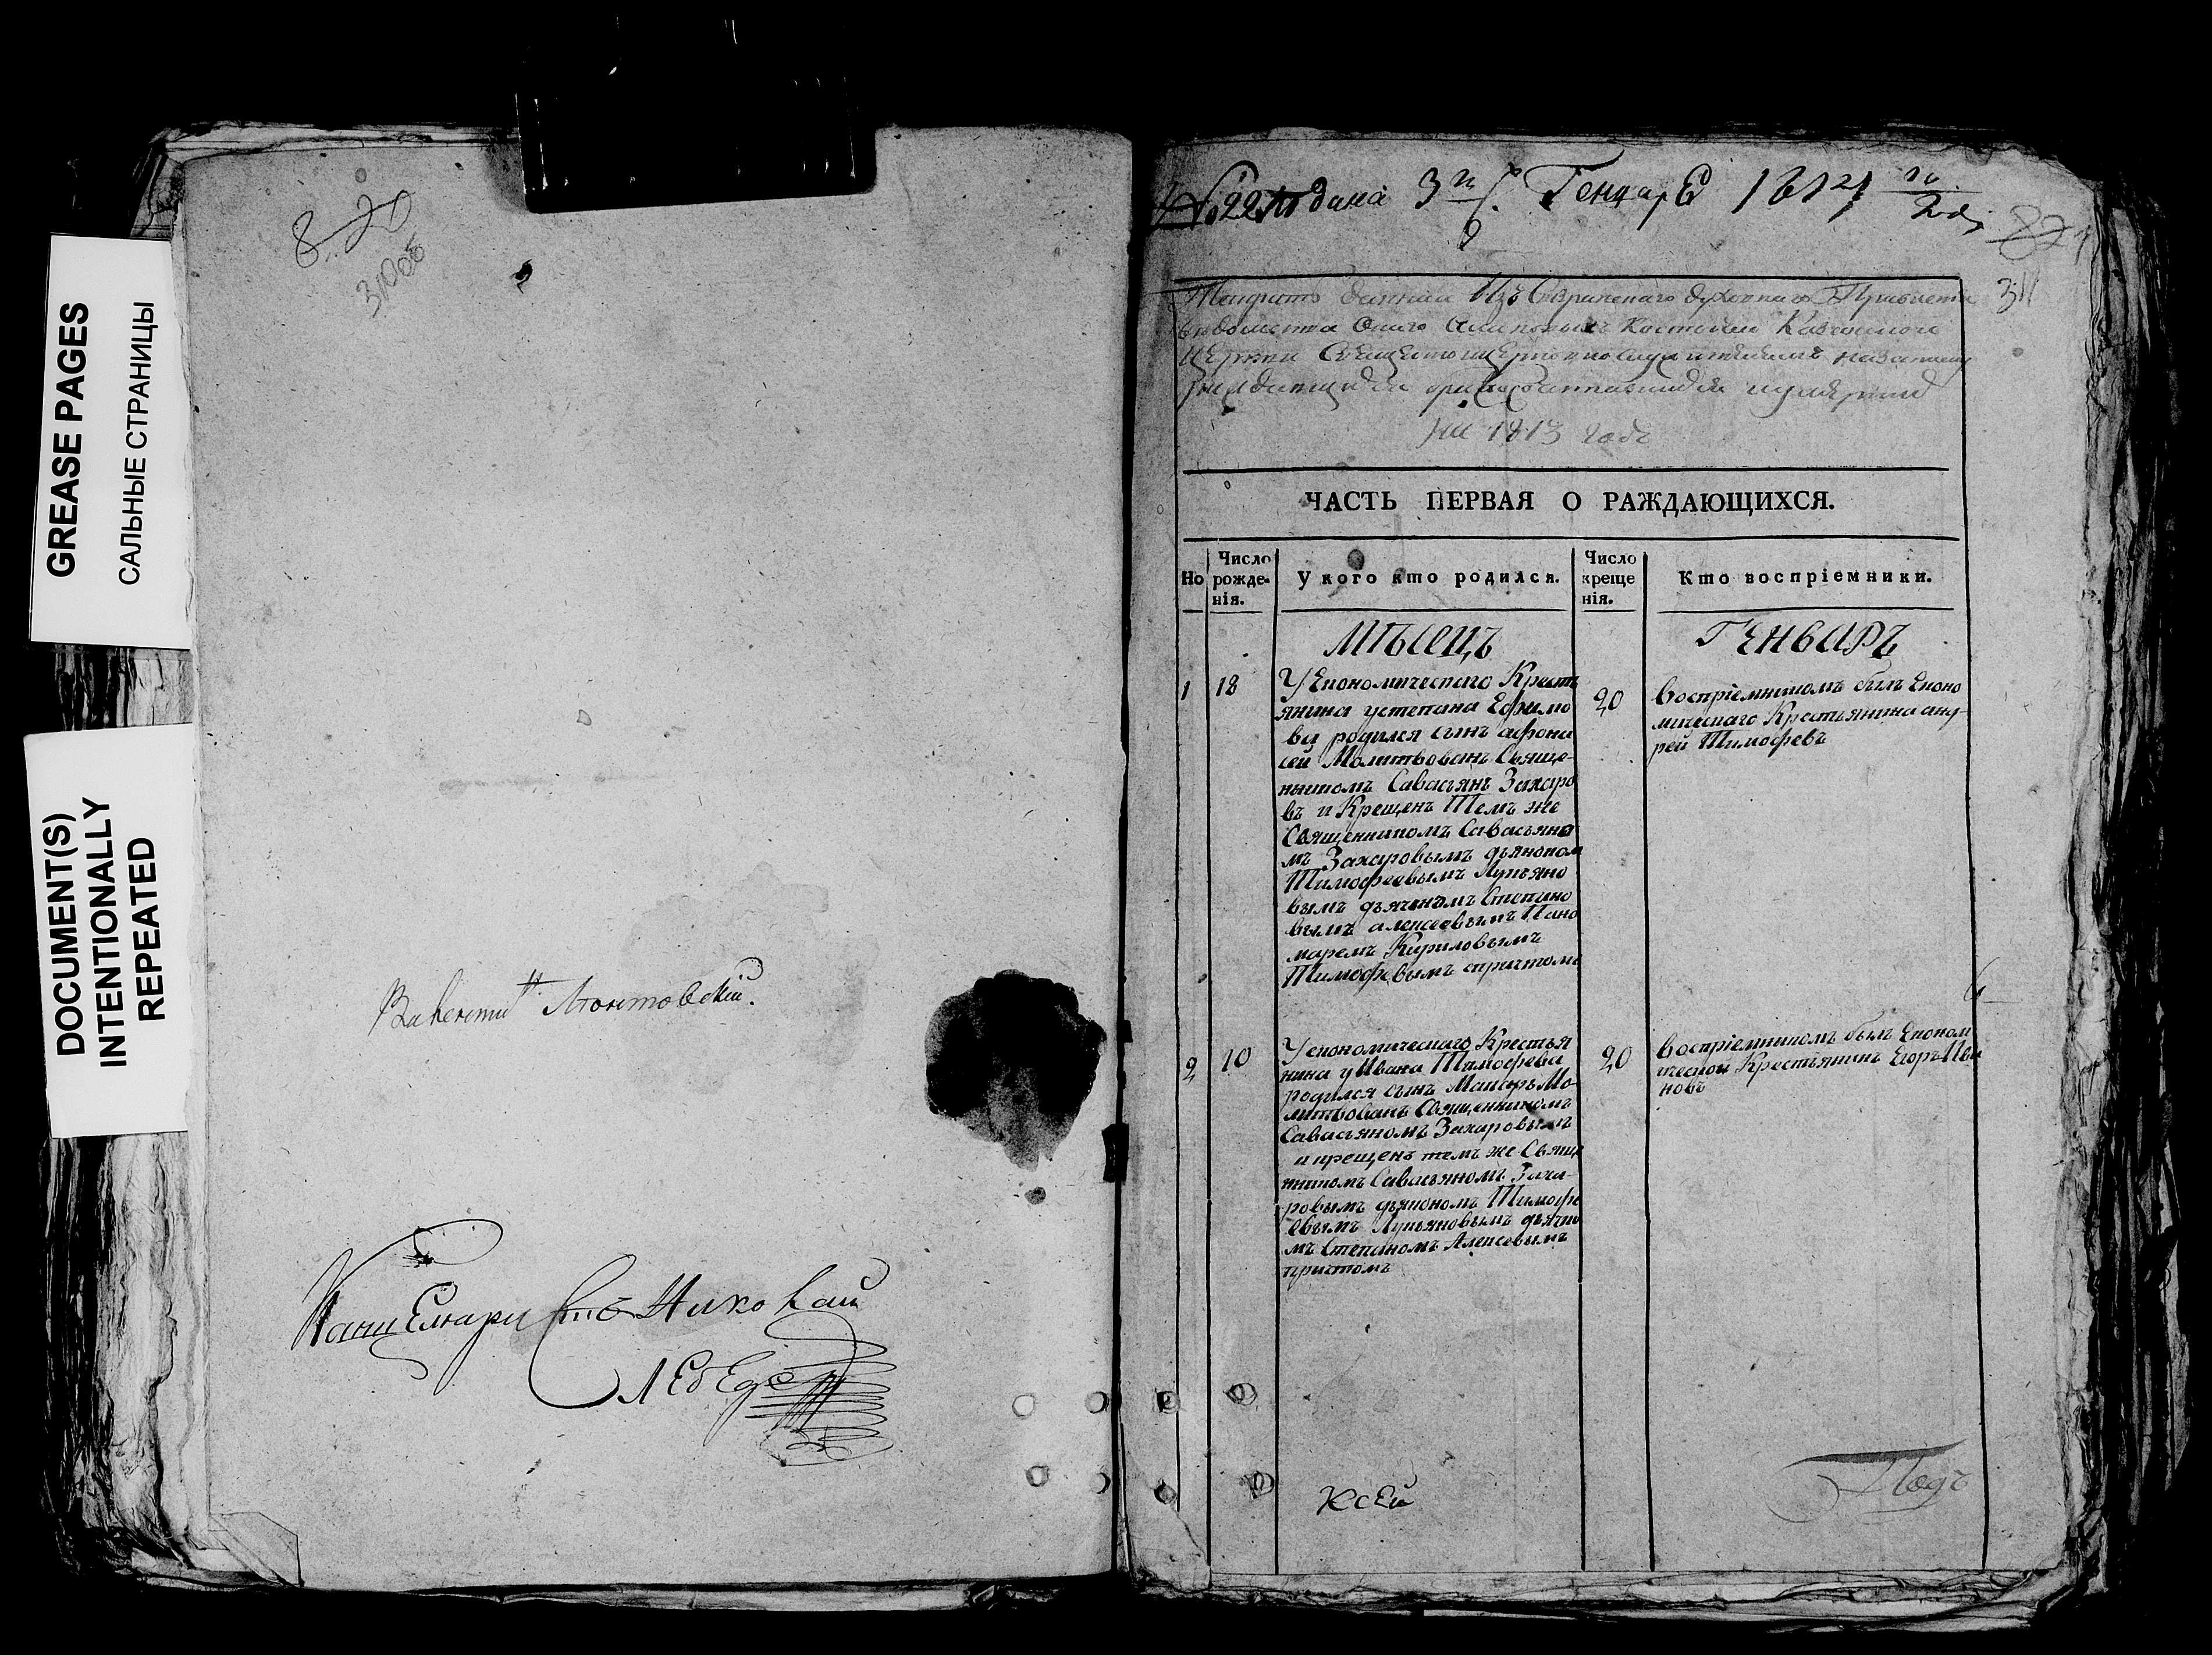 GREASE PAGES
САЛЬНЫЕ СТРАНИЦЫ
DOCUMENT(S)
INTENTIONALLY
REPEATED
820
310об
Канцеляристъ Николай
Лебедев
№ 22 подана 3 Генваря 1814 го
года
821
311
данная Изъ духовнаго Правления
ведомства онаго
церкви
на 1813 годъ
ЧАСТЬ ПЕРВАЯ О РАЖДАЮЩИХСЯ.
Но
Число рожденія.
У кого кто родился.
Число крещенія.
Кто воспріемники.
Мѣсецъ Генварь
1 18
У Економическаго Крестъ
янина устепана Ефимо
ва родился сынъ афона
сей Молитвованъ Свяще-
нникомъ Савасьянъ Захаро
въ и Крещенъ Темъ же
Священникомъ Савасьяно
мъ Захаровымъ дьякономъ
Тимофеевымъ Лукьяно
вымъ дьячкомъ Степано
вымъ алексеевымъ Поно
маремъ Кириловымъ
Тимофевымъ спричтомъ
20
воспріемникомъ былъ Еконо
мическаго Крестьянина анд-
рей Тимофевъ
2 10
У економическаго Крестья
нина уИвана Тимофева
родился сынъ Макаръ Мо-
литвованъ Священникомъ
Савасьяномъ Захаровымъ
и крещенъ темъ же Свяще
нникомъ Савасьяномъ Заха-
ровымъ дьякономъ Тимофе
евымъ Лукьяновымъ дьячко
мъ Степаномъ Алексевымъ
причтомъ
20
воспріемникомъ былъ Економ
ческой Крестьянинъ Егоръ Ива
новъ
Ксей
Подъ